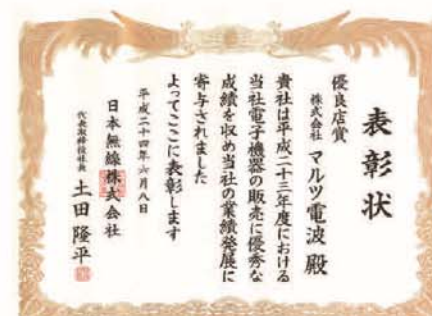 表彰状
優良店賞
株式会社 マルツ電波 殿
貴社は平成二十三年度における
当社電子機器の販売に優秀な
成績を収め当社の業績発展に
寄与されました
よってここに表彰します
平成二十四年六月八日
日本無線株式会社
代表取締役社長 土田隆平